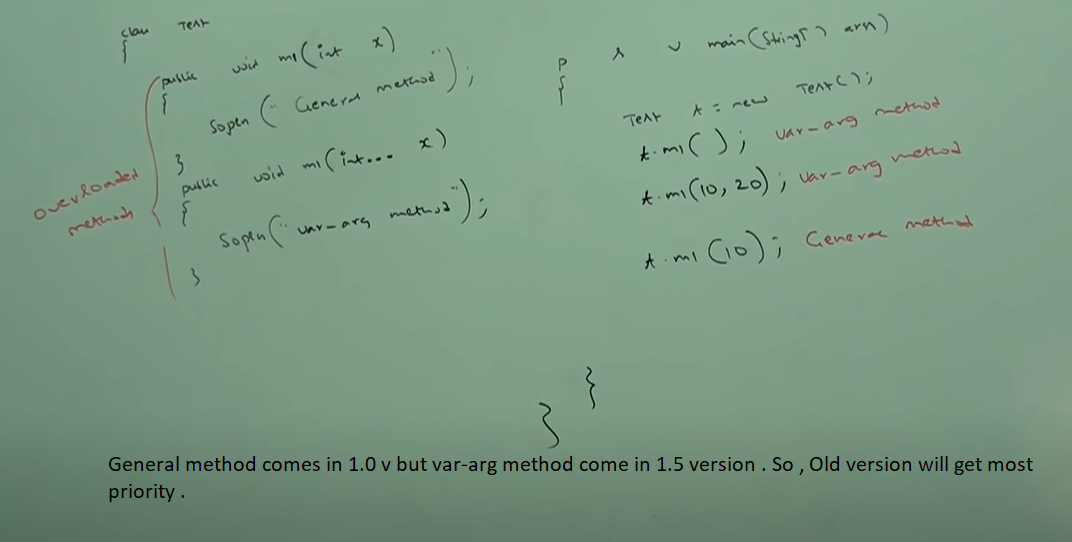 class Test
{
public void m1(int x)
{
Sopln("General method");
}
public void m1(int... x)
{
Sopln("var-arg method");
}
overloaded
methods
P s v main(String[] args)
{
Test t = new Test();
t.m1( ); var-arg method
t.m1(10, 20); var-arg method
t.m1(10); General method
}
}
General method comes in 1.0 v but var-arg method come in 1.5 version . So , Old version will get most
priority .